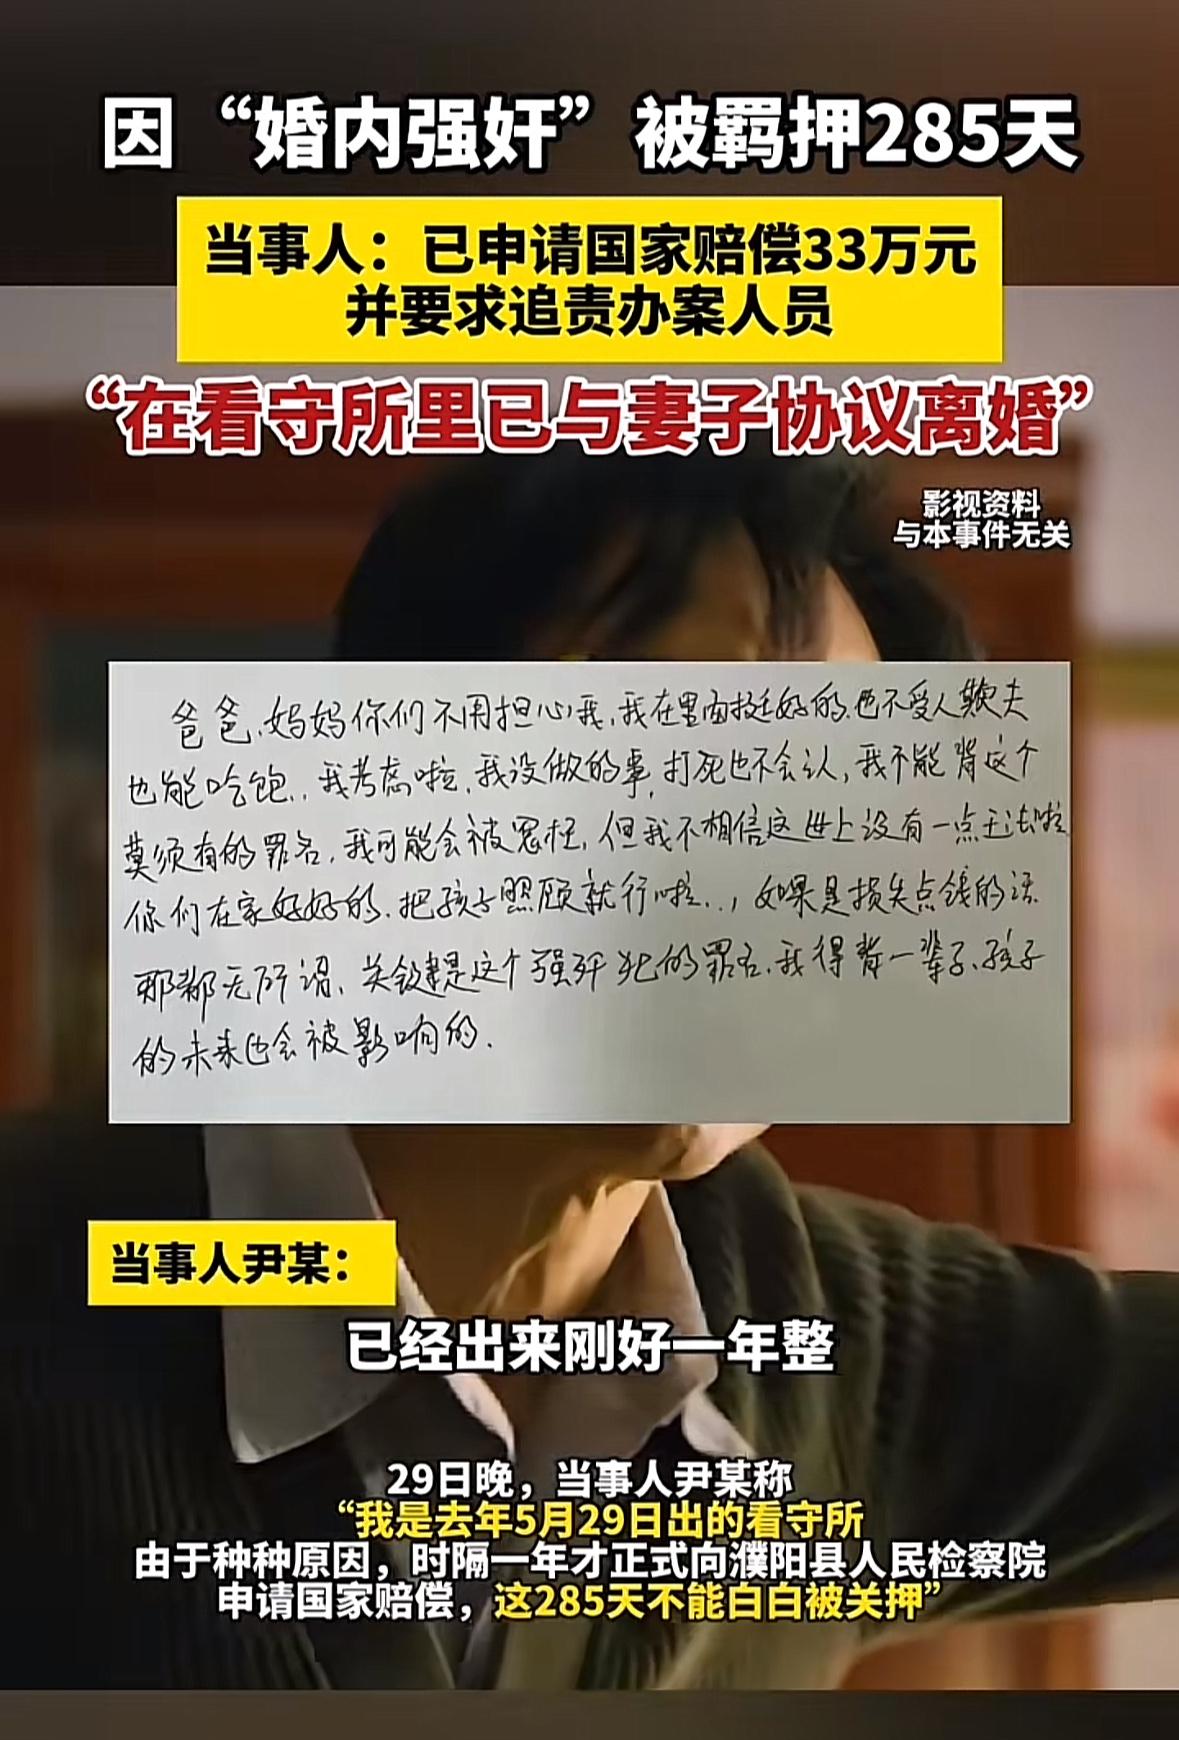 因“婚内强奸”被羁押285天
当事人：已申请国家赔偿33万元
并要求追责办案人员
“在看守所里已与妻子协议离婚”
影视资料
与本事件无关
爸爸、妈妈你们不用担心我,我在里面挺好的.也不受人欺夫
也能吃饱..我考虑啦,我没做的事,打死也不会认,我不能背这个
莫须有的罪名,我可能会被冤枉,但我不相信这世上没有一点王法啦
你们在家好好的.把孩子照顾就行啦..,如果是损失点钱的话
那都无所谓、关键是这个强奸犯的罪名.我得背一辈子、孩子
的未来也会被影响的.
当事人尹某：
已经出来刚好一年整
29日晚，当事人尹某称
“我是去年5月29日出的看守所
由于种种原因，时隔一年才正式向濮阳县人民检察院
申请国家赔偿，这285天不能白白被关押”